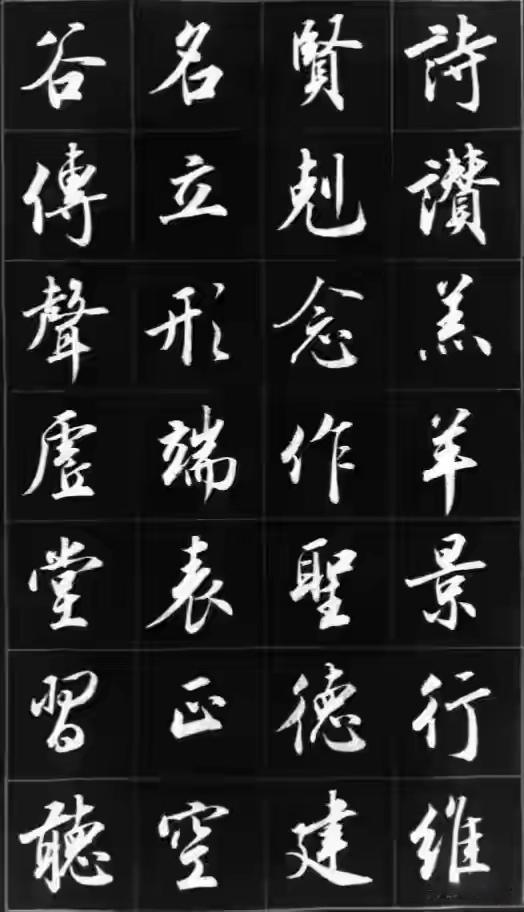 詩讚羔羊景行維
賢剋念作聖德建
名立形端表正空
谷傳聲虛堂習聽